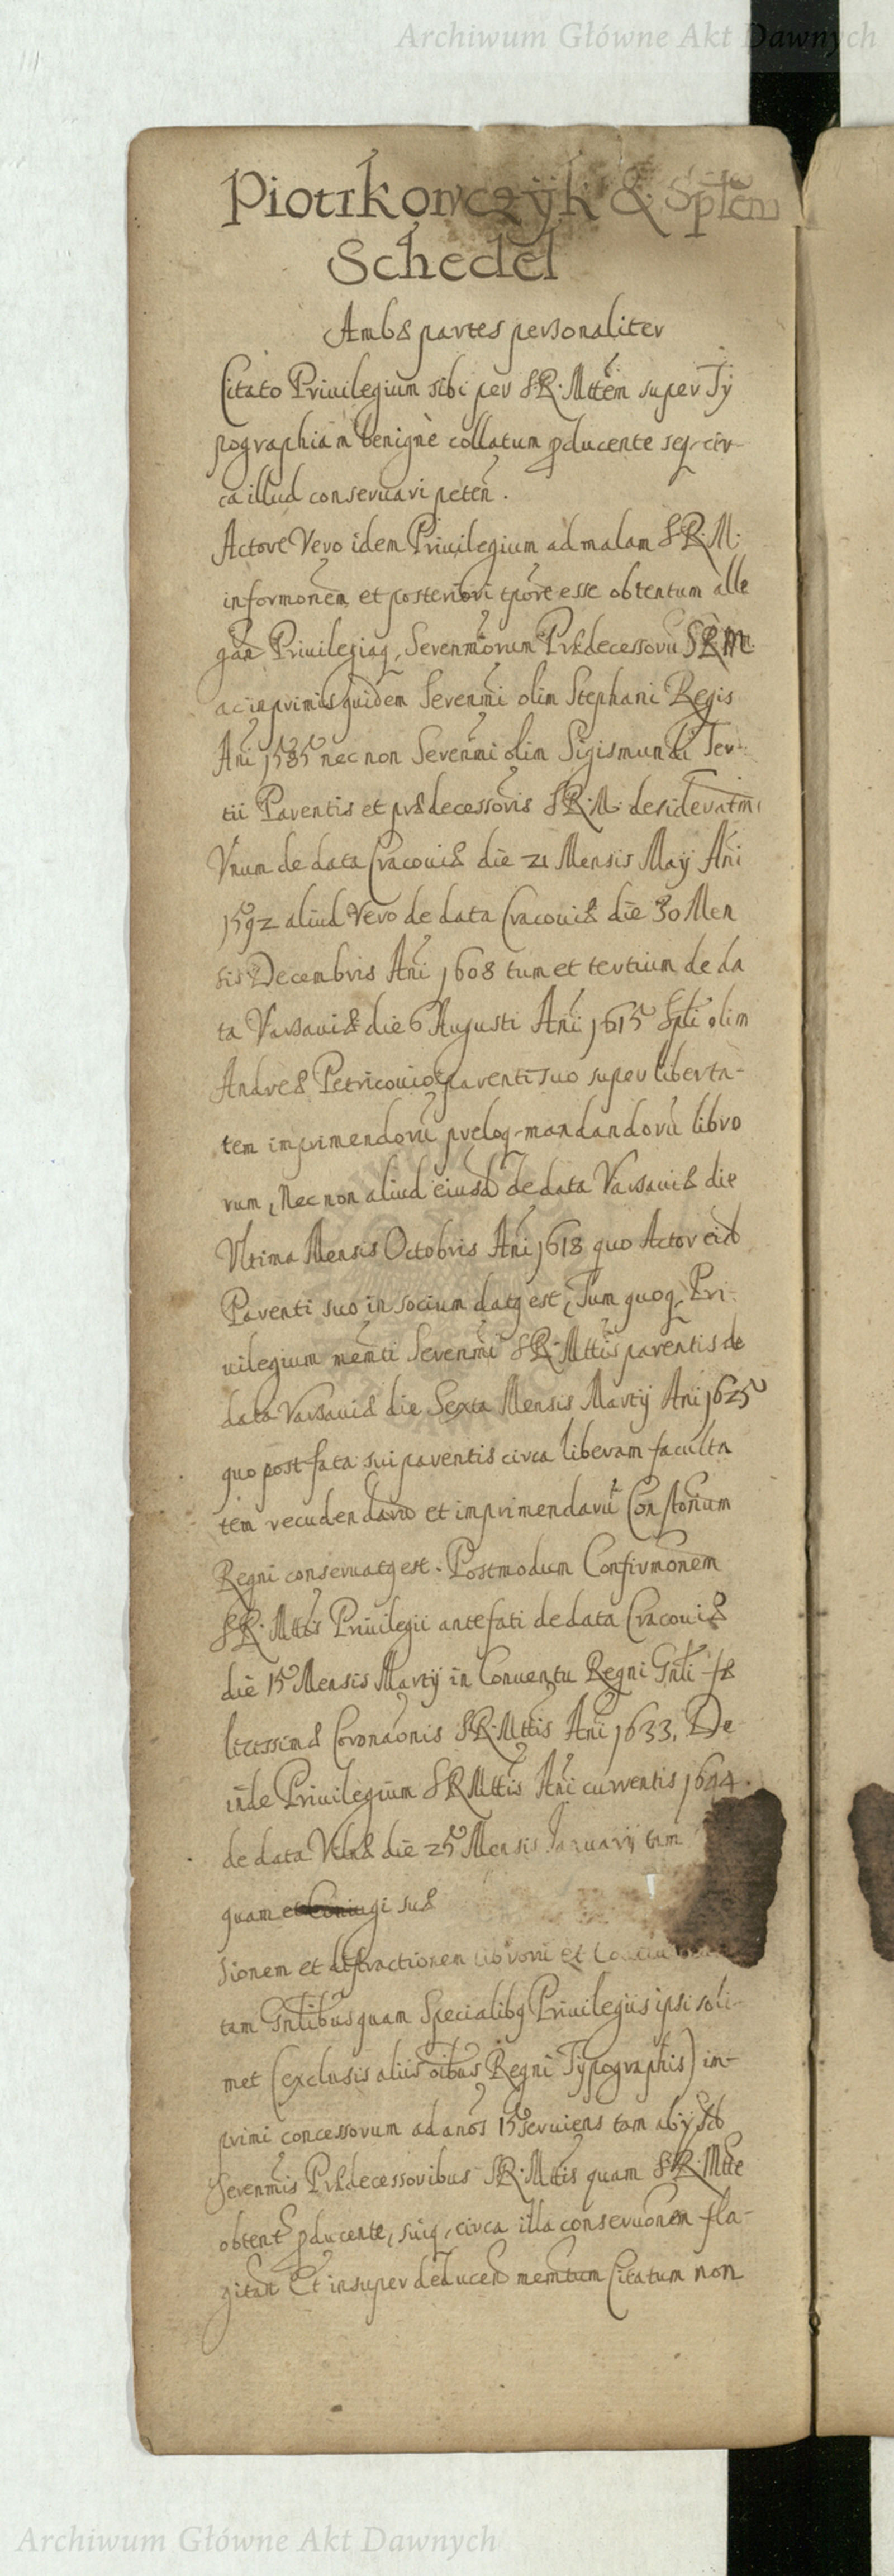 Archiwum Główne Akt Dawnych
Piotrkowczÿk & Sptem
Schedel
Ambæ partes personaliter
Citato Priuilegium sibi per S.R.Mttem super Ty
pographiam benignè collatum producente seq, cir
ca illud conseruari peten.
Actore Vero idem Priuilegium ad malam S.R.M.
informonem et posteriori tpore esse obtentum alle
gan Priuilegiaq, Serenmorum Prædecessoru S.R.M.
ac inprimis quidem Serenmi olim Stephani Regis
Ani 1585 nec non Serenmi olim Sigismundi Ter-
tii Parentis et prædecessoris S.R.M. desideratmi
Vnum de data Cracouiæ die 21 Mensis Maÿ Ani
1592 aliud Vero de data Cracouiæ die 30 Men
sis Decembris Ani 1608 tum et tertium de da
ta Varsauiæ die 6 Augusti Ani 1615 Spli olim
Andreæ Petricouio parenti suo super liberta-
tem imprimendoru preloq, mandandoru libro
rum, Nec non aliud eiusd de data Varsauiæ die
Vltima Mensis Octobris Ani 1618 quo Actor eid
Parenti suo in socium datq est, Tum quoq, Pri-
uilegium memti Serenmi S.R.Mttis parentis de
data Varsauiæ die Sexta Mensis Martÿ Ani 1625
quo post fata sui parentis circa liberam faculta
tem recudendaru et imprimendaru Constonum
Regni conseruatq est. Postmodum Confirmonem
S.R.Mttis Priuilegii antefati de data Cracouiæ
die 15 Mensis Martÿ in Conuentu Regni Gnli fæ
licissimæ Coronaonis S.R.Mttis Ani 1633. De
inde Priuilegium S.R.Mttis Ani currentis 1644.
de data Vilnæ die 25 Mensis Januarÿ tam
quam et Coniugi suæ
sionem et distractionem librorū et
tam Gnlibus quam Specialibq Priuilegiis ipsi soli-
met (exclusis aliis oibus Regni Typographis) im-
primi concessorum ad anos 15 seruiens tam ab
Serenmis Prædecessoribus S.R.Mttis quam S.R.Mtte
obtent producente, suiq, circa illa conseruonem fla-
gitan Et insuper deducen memtum Citatum non
Archiwum Główne Akt Dawnych